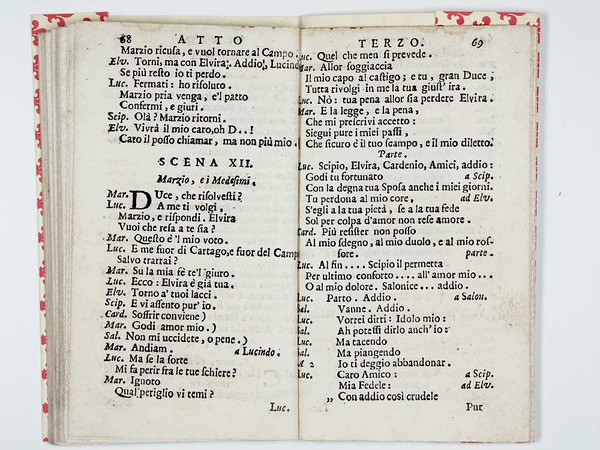 68 ATTO
Marzio ricusa, e vuol tornare al Campo.
Elv. Torni, ma con Elvira. Addio, Lucindo
Se più resto io ti perdo.
Luc. Fermati: ho risoluto.
Marzio pria venga, e'l patto
Confermi, e giuri.
Scip. Olà? Marzio ritorni.
Elv. Vivrà il mio caro, oh D..!
Caro il posso chiamar, ma non più mio.
SCENA XII.
Marzio, e i Medesimi.
Mar. DUce, che risolvesti?
Luc. A me ti volgi,
Marzio, e rispondi. Elvira
Vuoi che resa a te sia?
Mar. Questo è 'l mio voto.
Luc. E me fuor di Cartago, e fuor del Camp
Salvo trarrai?
Mar. Su la mia fè te'l giuro.
Luc. Ecco: Elvira è già tua.
Elv. Torno a' tuoi lacci.
Scip. E vi assento pur' io.
Card. Soffrir conviene)
Mar. Godi amor mio.)
Sal. Non mi uccidete, o pene.)
Mar. Andiam. a Lucindo.
Luc. Ma se la sorte
Mi fa perir fra le tue schiere?
Mar. Ignoto
Qual periglio vi temi?
Luc.
TERZO. 69
Luc. Quel che men si prevede.
Mar. Allor soggiaccia
Il mio capo al castigo; e tu, gran Duce,
Tutta rivolgi in me la tua giust' ira.
Luc. Nò: tua pena allor sia perdere Elvira.
Mar. E la legge, e la pena,
Che mi prescrivi accetto:
Siegui pure i miei passi,
Che sicuro è il tuo scampo, e il mio diletto.
Parte.
Luc. Scipio, Elvira, Cardenio, Amici, addio:
Godi tu fortunato a Scip.
Con la degna tua Sposa anche i miei giorni.
Tu perdona al mio core, ad Elv.
S'egli a la tua pietà, se a la tua fede
Sol per colpa d'amor non rese amore.
Card. Più resister non posso
Al mio sdegno, al mio duolo, e al mio ros-
sore. parte.
Luc. Al fin.... Scipio il permetta
Per ultimo conforto.... all' amor mio...
O al mio dolore. Salonice... addio.
Luc. Parto. Addio. a Salon.
Sal. Vanne. Addio.
Luc. Vorrei dirti: Idolo mio:
Sal. Ah potessi dirlo anch' io:
Luc. Ma tacendo
Sal. Ma piangendo
A 2 Io ti deggio abbandonar.
Luc. Caro Amico: a Scip.
Mia Fedele: ad Elv.
„ Con addio così crudele
Pur